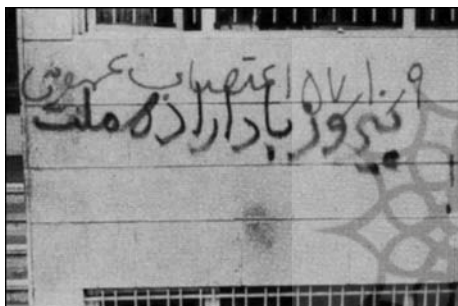 ۹ ۱۰ ۵۷ اعتصاب عمومی
پیروز باد اراده ملت